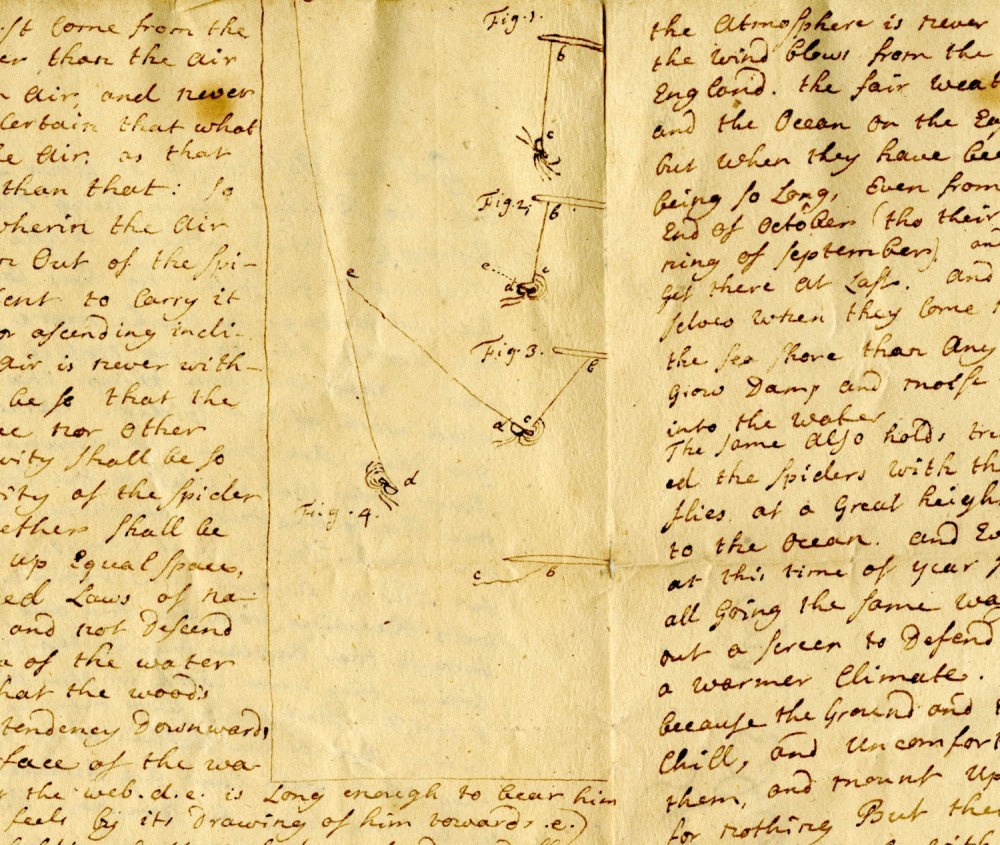 st Come from the
er, than the air
n air, and never
Certain that what
he air, as that
than that: so
wherin the air
n Out of the spi-
ient to Carry it
or ascending incli-
air is never with-
be so that the
ee nor Other
vity shall be so
ity of the spider
ether shall be
up Equal space,
ed Laws of na-
and not Descend
a of the water
hat the woods
tendency Downwards
face of the wa-
the web.d.e. is Long enough to bear him
feels by its Drawing of him towards .e.)
Fig. 1.
b
c
Fig. 2.
b
e
c
d
e
Fig. 3.
b
d
c
d
Fig. 4.
c
b
the atmosphere is never
the wind blows from the
England. the fair weat
and the Ocean on the Ea
but when they have bee
being so Long, Even from
End of October (tho their
ning of september) and
get there at Last. and
selves when they Come
the sea shore than any
Grow Damp and moise
into the water
The same also holds tru
ed the spiders with th
flies at a Great heigh
to the Ocean. and Ev
at this time of year
all Going the same wa
out a screen to Defend
a warmer Climate.
because the Ground and
Chill, and Uncomfort
them, and mount up
for nothing But the